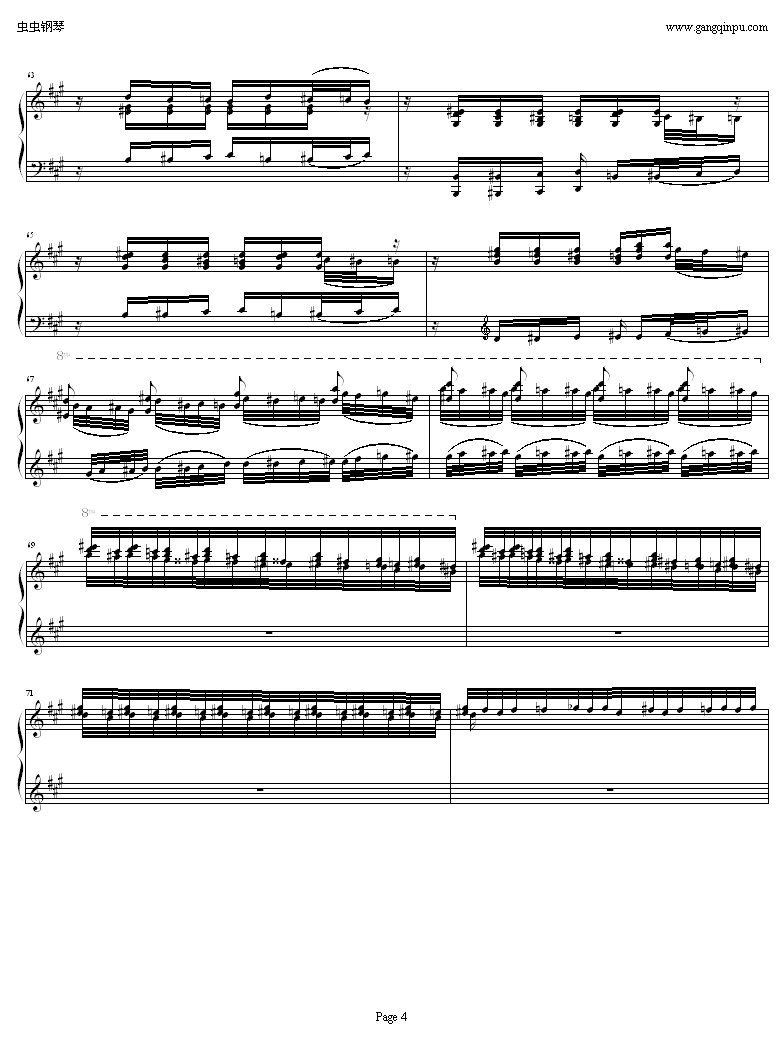 虫虫钢琴
www.gangqinpu.com
63
65
8va
67
8va
69
71
Page 4